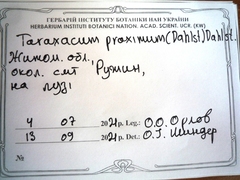 ГЕРБАРІЙ ІНСТИТУТУ БОТАНІКИ НАН УКРАЇНИ
HERBARIUM INSTITUTI BOTANICI NATION. ACAD. SCIENT. UCR. (KW)
Taraxacum proximum (Dahlst) Dahlst.
Жытом. обл.,
окол. смт Ружин,
на лузі
4 07 2021 р. Leg.: О.О. Орлов
13 09 2021 р. Det.: О.І. Шиндер